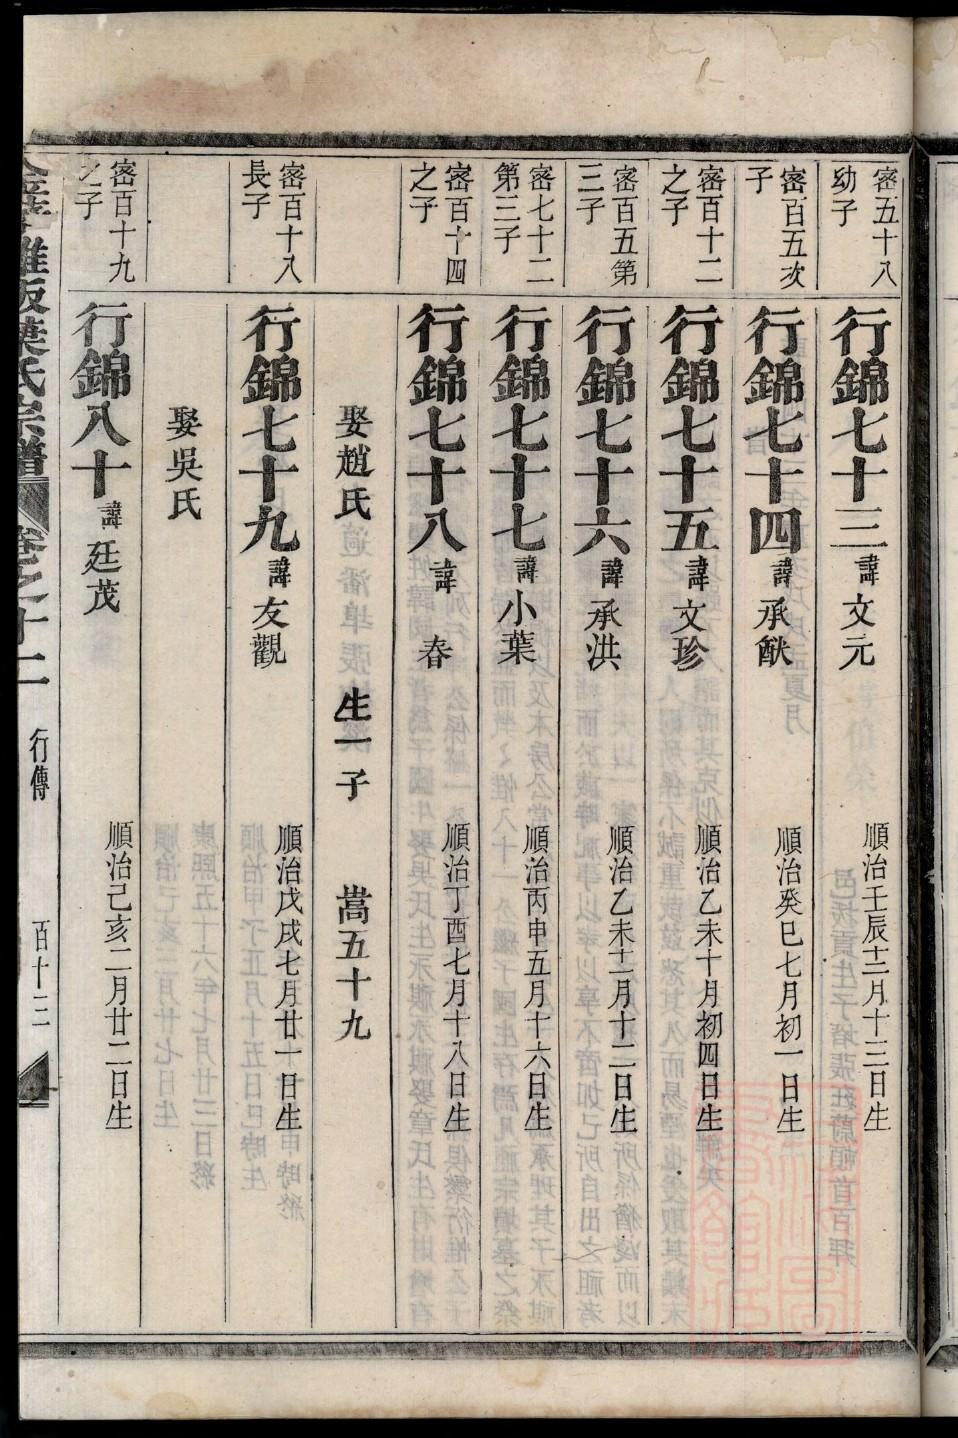 密五十八
幼子
行錦七十三諱文元
順治壬辰十二月十三日生
密百五次
子
行錦七十四諱承猷
順治癸巳七月初一日生
密百十二
之子
行錦七十五諱文珍
順治乙未十月初四日生
密百五第
三子
行錦七十六諱承洪
順治乙未十一月十二日生
密七十二
第三子
行錦七十七諱小葉
順治丙申五月十六日生
密百十四
之子
行錦七十八諱春
順治丁酉七月十八日生
娶趙氏
生一子
嵩五十九
密百十八
長子
行錦七十九諱友觀
順治戊戌七月廿一日生
娶吳氏
密百十九
之子
行錦八十諱廷茂
順治己亥二月廿二日生
葉氏宗譜
卷之十二
行傳
百十三